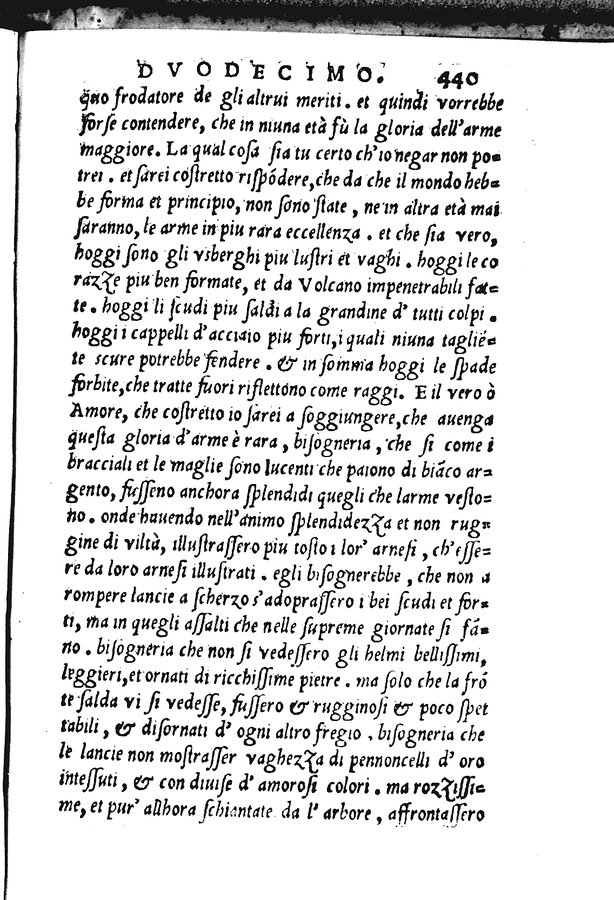 DVODECIMO. 440
quo frodatore de gli altrui meriti. et quindi vorrebbe
forse contendere, che in niuna età fù la gloria dell'arme
maggiore. La qual cosa sia tu certo ch'io negar non po=
trei. et sarei costretto rispõdere, che da che il mondo heb=
be forma et principio, non sono state, ne in altra età mai
saranno, le arme in piu rara eccellenza. et che sia vero,
hoggi sono gli vsberghi piu lustri et vaghi. hoggi le co
razze piu ben formate, et da Volcano impenetrabili fat=
te. hoggi li scudi piu saldi a la grandine d' tutti colpi.
hoggi i cappelli d'acciaio piu forti, i quali niuna tagliẽ=
te scure potrebbe fendere. & in somma hoggi le spade
forbite, che tratte fuori riflettono come raggi. E il vero ò
Amore, che costretto io sarei a soggiungere, che auenga
questa gloria d'arme è rara, bisogneria, che si come i
bracciali et le maglie sono lucenti che paiono di biãco ar=
gento, fusseno anchora splendidi quegli che larme vesto=
no. onde hauendo nell'animo splendidezza et non rug=
gine di viltà, illustrassero piu tosto i lor' arnesi, ch'esse=
re da loro arnesi illustrati. egli bisognerebbe, che non a
rompere lancie a scherzo s'adoprassero i bei scudi et for=
ti, ma in quegli assalti che nelle supreme giornate si fã=
no. bisogneria che non si vedessero gli helmi bellissimi,
leggieri, et ornati di ricchissime pietre. ma solo che la frõ
te salda vi si vedesse, fussero & rugginosi & poco spet
tabili, & disornati d' ogni altro fregio. bisogneria che
le lancie non mostrasser vaghezza di pennoncelli d' oro
intessuti, & con diuise d' amorosi colori. ma rozzissi=
me, et pur' allhora schiantate da l' arbore, affrontassero